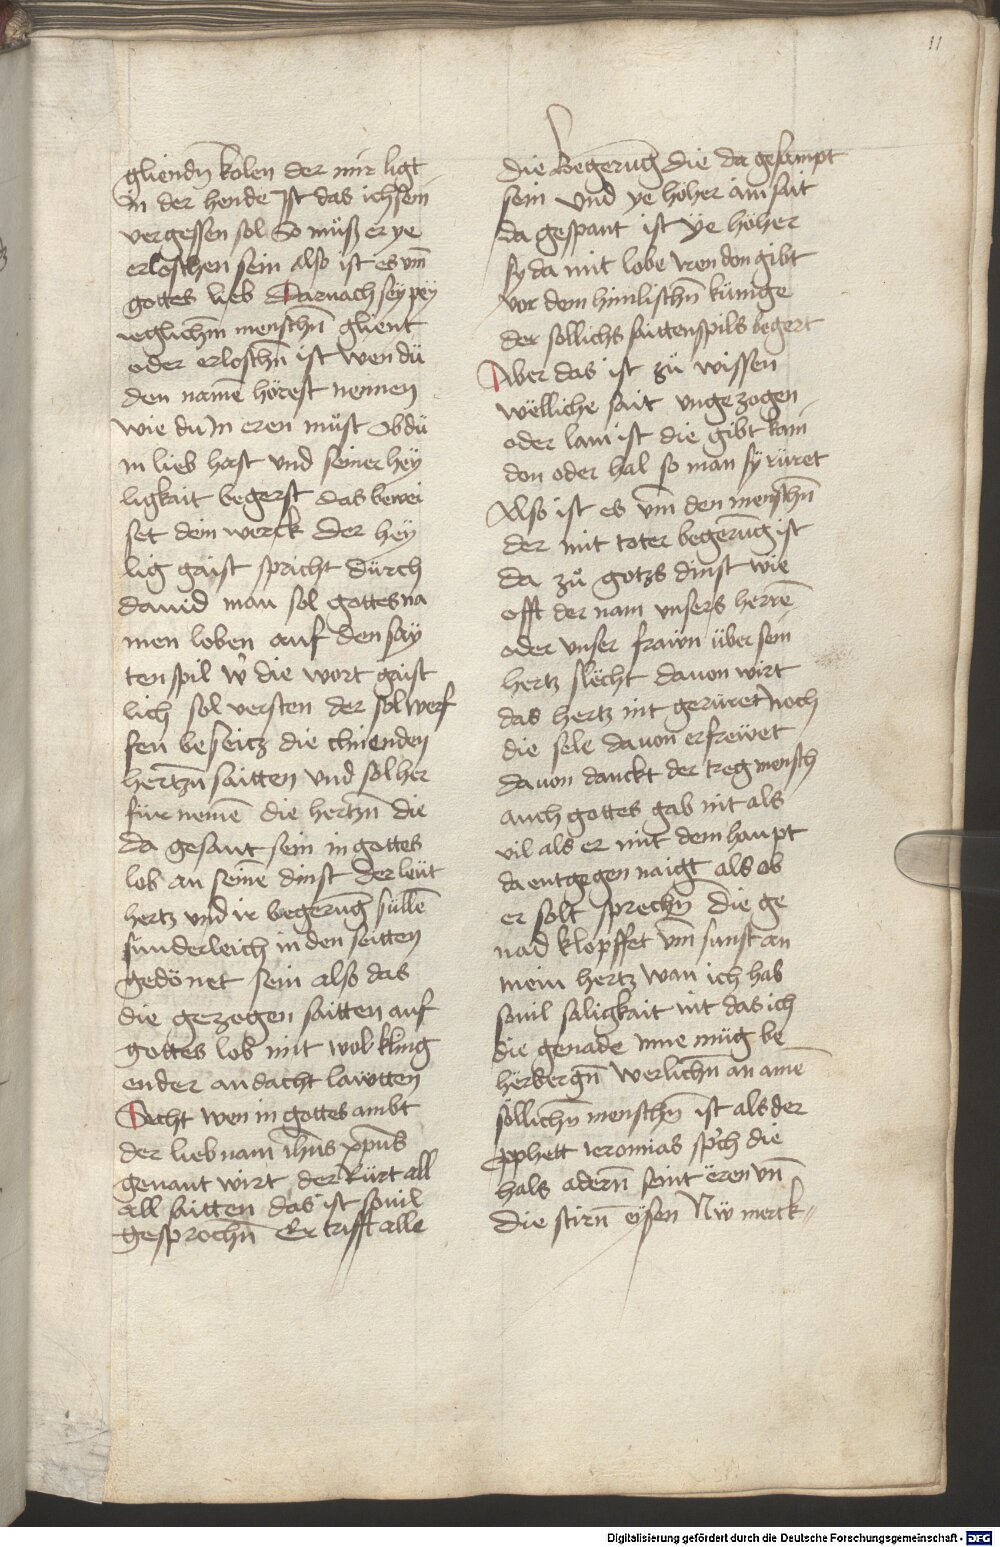 11
gliendn̄ kolen der mir ligt
in der hende Ist das ich sein
vergessen sol So müß er ye
erloschen sein also ist es vm̄
gottes lieb Darnach sey pey
yeglichem menschn̄ glient
oder erloschn̄ ist wen dü
den namē hörest nennen
wie du In eren müst ob dü
in lieb hast vnd seiner hey
ligkait begerst das bewei
set dein werck der hey
lig gaist spricht dürch
dauid man sol gottes na
men loben auf den say
ten spil w̄ die wort gaist
lich sol versten der sol werf
fen beseitz die chnenden
hertzn̄ saitten vnd sol her
für nemē die hertzn̄ die
da gesant sein in gottes
lob an seinē dinst der leüt
hertz vnd ir begerūg süllē
sünderleich in den seitten
gedönet sein also das
die gezogen saitten auf
gottes lob mit wol kling
ender andacht lawtten
Secht wen in gottes ambt
der lieb nam ih̄us xp̄us
genant wirt der Rürt all
all saitten das ist souil
gesprochn̄ Er trifft alle
die Begerūg die da gesampt
sein vnd ye höher ain sait
da gespant ist ÿe höher
sy da mit lobe iren don gibt
vor dem himlischn̄ künige
der söllichs saittenspils begert
Aber das ist zů wissen
wëlliche sait vngezogen
oder lam ist die gibt kain
don oder hal so man sy rüret
Also ist es vm̄ den menschn̄
der mit toter begerūg ist
da zů gotzs dinst wie
offt der nam vnsers herrē
oder vnser frawn über sein
hertz slëcht dauon wirt
das hertz nit gerüret noch
die sele dauon erfrewet
dauon danckt der treg mensch
auch gottes gab nit als
vil als er mit dem haupt
da entgegen naigt als ob
er solt sprechn̄ die ge
nad klopffet vm̄ sunst an
mein hertz wan ich hab
souil säligkait nit das ich
die genade inne müg be
hërbergn̄ werlichn̄ an ainē
söllichn̄ menschn̄ ist als der
pphett ieromias sp̄ch die
hals adern̄ seint ëren vn̄
die stirn̄ eysen Nw merck
Digitalisierung gefördert durch die Deutsche Forschungsgemeinschaft - DFG